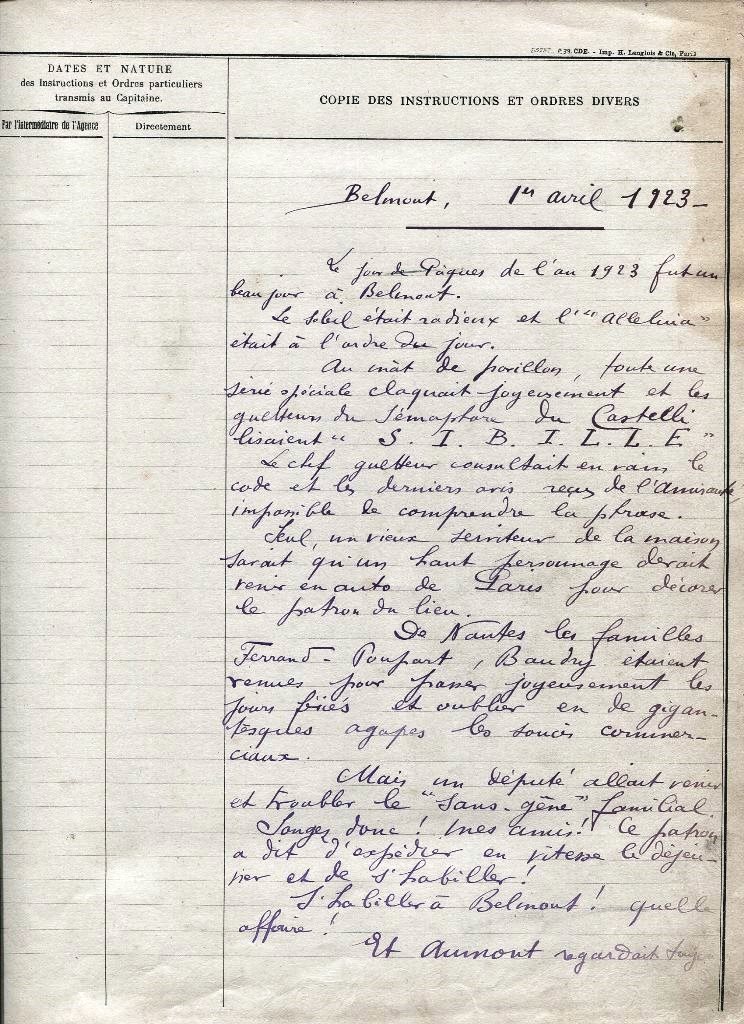 P. 39. CDE. - Imp. H. Langlois & Cie, Paris
DATES ET NATURE
des Instructions et Ordres particuliers
transmis au Capitaine.
Par l'intermédiaire de l'Agence
Directement
COPIE DES INSTRUCTIONS ET ORDRES DIVERS
Belmont, 1er avril 1923 -
Le jour de Pâques de l'an 1923 fut un
beau jour à Belmont.
Le soleil était radieux et l'"Alleluia"
était à l'ordre du jour.
Au mât de pavillon, toute une
série spéciale claquait joyeusement et les
guetteurs du Sémaphore du Castelli
lisaient " S. I. B. I. L. L. E "
Le chef guetteur consultait en vain le
code et les derniers avis reçus de l'Amirauté,
impossible de comprendre la phrase.
Seul, un vieux serviteur de la maison
savait qu'un haut personnage devait
venir en auto de Paris pour décorer
le patron du lieu.
De Nantes les familles
Ferrand - Poupart, Baudry étaient
venues pour passer joyeusement les
jours fériés et oublier en de gigan-
tesques agapes les soucis commer-
ciaux.
Mais un député allait venir
et troubler le "sans-gêne" familial.
Songez donc ! mes amis ! Le patron
a dit d'expédier en vitesse le déjeu-
ner et de s'habiller !
S'habiller à Belmont ! quelle
affaire !
Et Aumont regardait